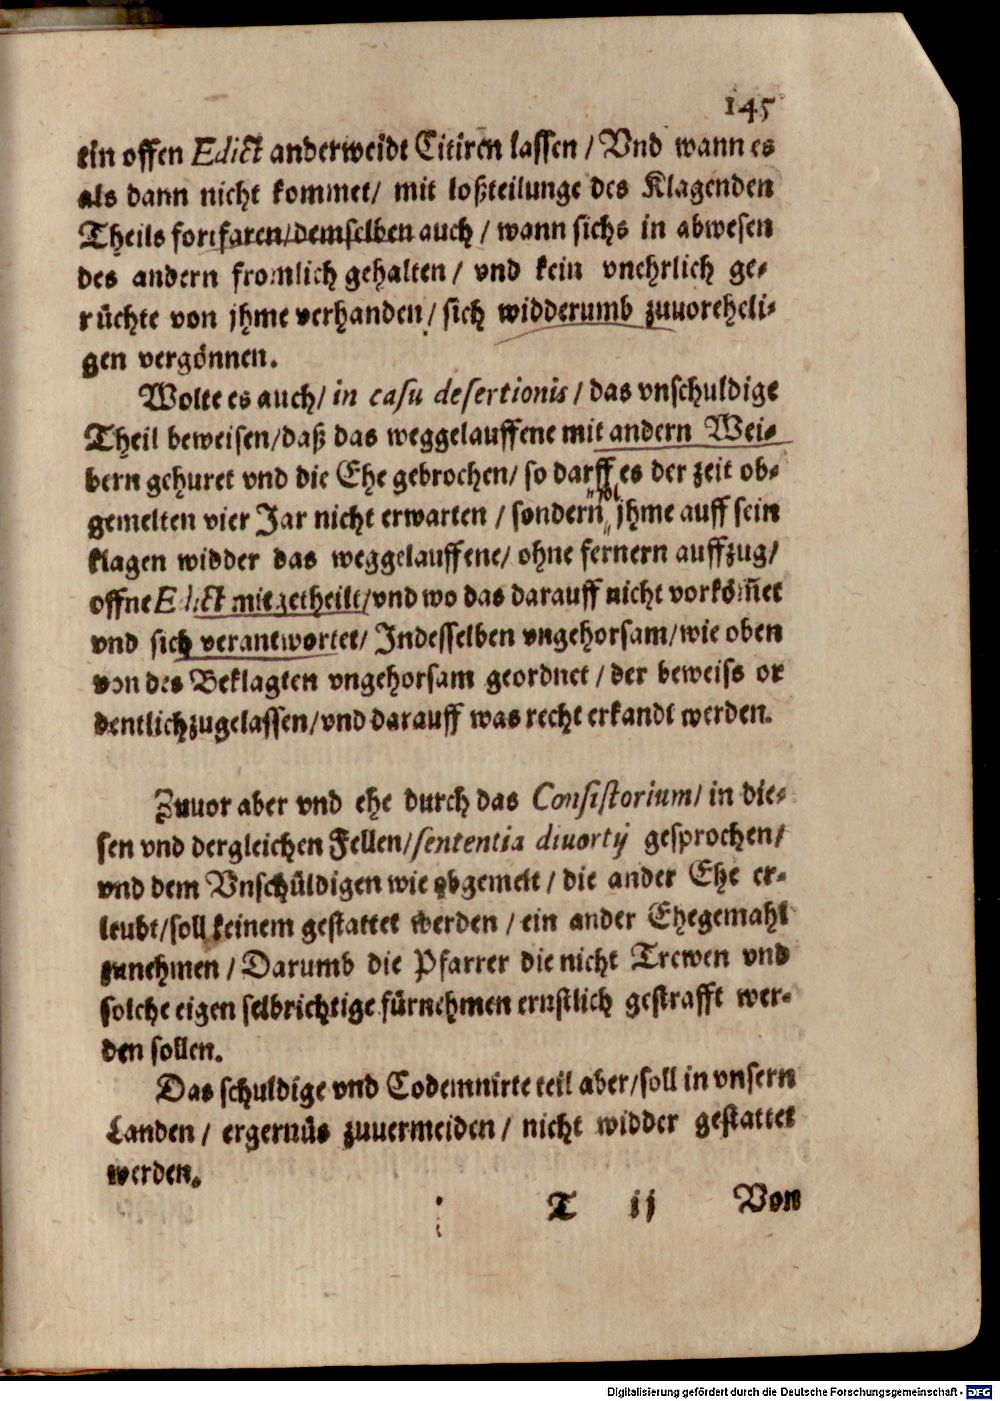 145
ein offen Edict anderweidt Citiren lassen / Vnd wann es
als dann nicht kommet / mit loßteilunge des Klagenden
Theils fortfaren / demselben auch / wann sichs in abwesen
des andern fromlich gehalten / vnd kein vnehrlich ge-
rüchte von jhme verhanden / sich widderumb zuuoreheli-
gen vergönnen.
Wolte es auch / in casu desertionis / das vnschuldige
Theil beweisen / daß das weggelauffene mit andern Wei-
bern gehuret vnd die Ehe gebrochen / so darff es der zeit ob-
gemelten vier Jar nicht erwarten / sondern jhme auff sein
klagen widder das weggelauffene / ohne fernern auffzug /
offne Edict mitgetheilt / vnd wo das darauff nicht vorköm̃et
vnd sich verantwortet / Indesselben vngehorsam / wie oben
von des Beklagten vngehorsam geordnet / der beweiss or
dentlich zugelassen / vnd darauff was recht erkandt werden.
Zuuor aber vnd ehe durch das Consistorium / in die-
sen vnd dergleichen Fellen / sententia diuortij gesprochen /
vnd dem Vnschüldigen wie obgemelt / die ander Ehe er-
leubt / soll keinem gestattet werden / ein ander Ehegemahl
zunehmen / Darumb die Pfarrer die nicht Trewen vnd
solche eigen selbrichtige fürnehmen ernstlich gestrafft wer-
den sollen.
Das schuldige vnd Codemnirte teil aber / soll in vnsern
Landen / ergernüs zuuermeiden / nicht widder gestattet
werden.
T ij Von
Digitalisierung gefördert durch die Deutsche Forschungsgemeinschaft - DFG